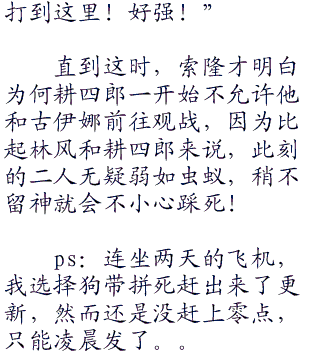 打到这里！好强！”
直到这时，索隆才明白
为何耕四郎一开始不允许他
和古伊娜前往观战，因为比
起林风和耕四郎来说，此刻
的二人无疑弱如虫蚁，稍不
留神就会不小心踩死！
ps：连坐两天的飞机，
我选择狗带拼死赶出来了更
新，然而还是没赶上零点，
只能凌晨发了。。